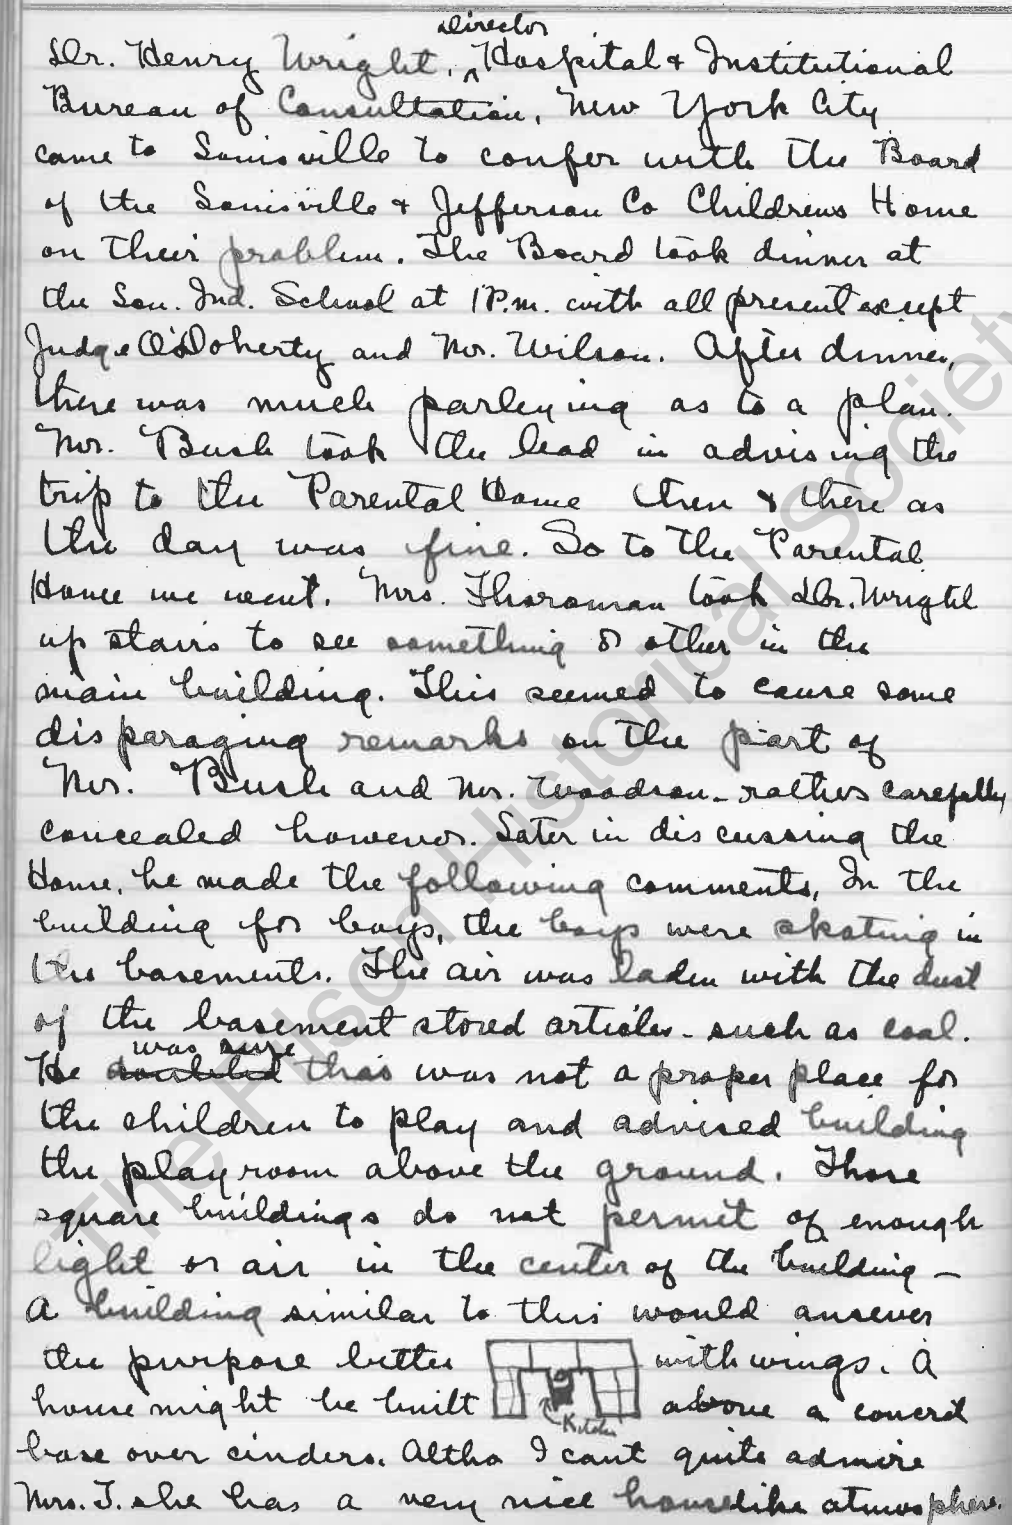 Director
Dr. Henry Wright, ^ Hospital & Institutional
Bureau of Consultation, New York City
came to Louisville to confer with the Board
of the Louisville & Jefferson Co Childrens Home
on their problem. The Board took dinner at
the Lou. Ind. School at 1 P.m. with all present except
Judge O'Doherty and Mr. Wilson. After dinner,
there was much parleying as to a plan.
Mr. Bush took the lead in advising the
trip to the Parental Home then & there as
the day was fine. So to the Parental
Home we went. Mrs. Tharoman took Dr. Wright
up stairs to see something or other in the
main building. This seemed to cause some
disparaging remarks on the part of
Mr. Bush and Mr. Woodson - rather carefully
concealed however. Later in discussing the
Home, he made the following comments, In the
building for boys, the boys were skating in
the basements. The air was laden with the dust
of the basement stored articles - such as coal.
was sure
He doubted this was not a proper place for
the children to play and advised building
the playroom above the ground. Those
square buildings do not permit of enough
light or air in the center of the building -
A building similar to this would answer
the purpose better with wings. A
house might be built above a concret
Kitchen
base over cinders. Altho I cant quite admire
Mrs. T. she has a very nice houselike atmosphere.
The Filson Historical Society